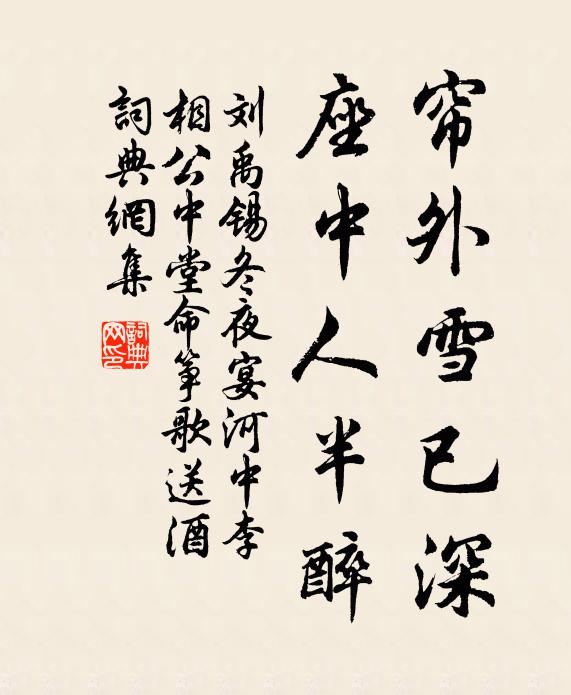 帘外雪已深
座中人半醉
刘禹锡冬夜宴河中李
相公中堂命筝歌送酒
詞典網集
詞典网印